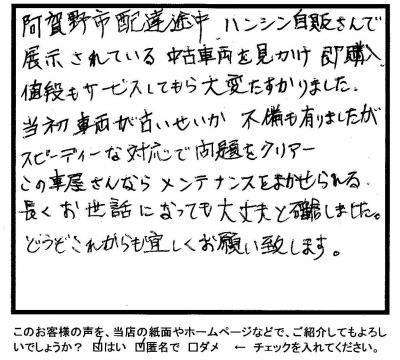 阿賀野市配達途中 ハンシン自販さんで
展示されている 中古車両を見かけ 即購入
値段もサービスしてもらい大変たすかりました.
当初車両が古いせいか 不備も有りましたが
スピーディーな対応で問題をクリアー
この車屋さんなら メンテナンスをまかせられる.
長くお世話になっても大丈夫と確認しました。
どうぞこれからも宜しくお願い致します。
このお客様の声を、当店の紙面やホームページなどで、ご紹介してもよろし
いでしょうか? ☑はい ☑匿名で ☐ダメ ← チェックを入れてください。